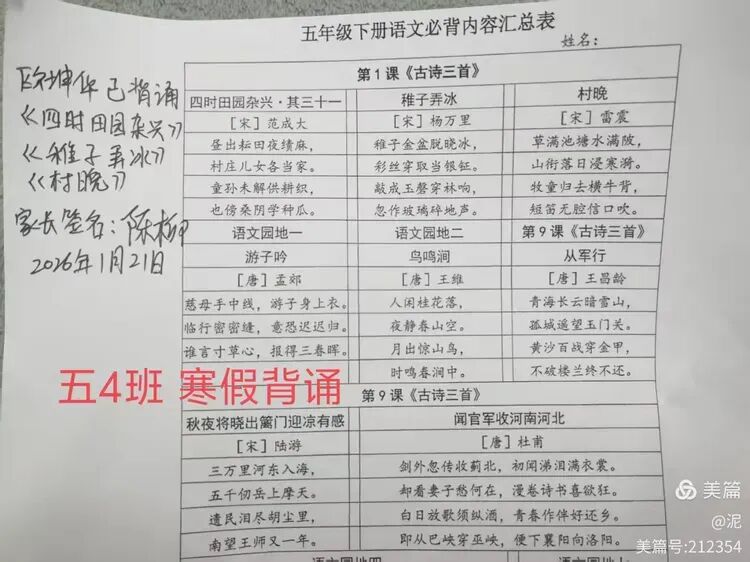 五年级下册语文必背内容汇总表
姓名：
第1课《古诗三首》
四时田园杂兴·其三十一
[宋]范成大
昼出耘田夜绩麻，
村庄儿女各当家。
童孙未解供耕织，
也傍桑阴学种瓜。
稚子弄冰
[宋]杨万里
稚子金盆脱晓冰，
彩丝穿取当银钲。
敲成玉磬穿林响，
忽作玻璃碎地声。
村晚
[宋]雷震
草满池塘水满陂，
山衔落日浸寒漪。
牧童归去横牛背，
短笛无腔信口吹。
语文园地一
游子吟
[唐]孟郊
慈母手中线，游子身上衣。
临行密密缝，意恐迟迟归。
谁言寸草心，报得三春晖。
语文园地二
鸟鸣涧
[唐]王维
人闲桂花落，
夜静春山空。
月出惊山鸟，
时鸣春涧中。
第9课《古诗三首》
从军行
[唐]王昌龄
青海长云暗雪山，
孤城遥望玉门关。
黄沙百战穿金甲，
不破楼兰终不还。
第9课《古诗三首》
秋夜将晓出篱门迎凉有感
[宋]陆游
三万里河东入海，
五千仞岳上摩天。
遗民泪尽胡尘里，
南望王师又一年。
闻官军收河南河北
[唐]杜甫
剑外忽传收蓟北，初闻涕泪满衣裳。
却看妻子愁何在，漫卷诗书喜欲狂。
白日放歌须纵酒，青春作伴好还乡。
即从巴峡穿巫峡，便下襄阳向洛阳。
坤华已背诵
《四时田园杂兴》
《稚子弄冰》
《村晚》
家长签名：陈
2026年1月21日
五4班 寒假背诵
美篇
@泥
美篇号:212354